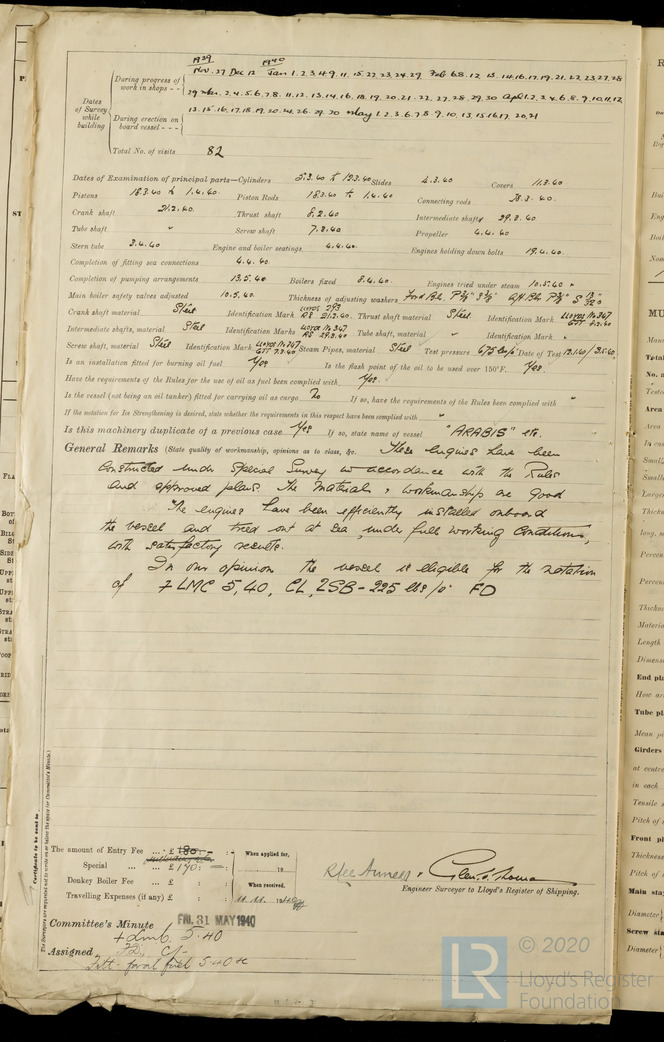 1939 1940
During progress of work in shops - - Nov. 27 Dec 12 Jan 1. 2. 3. 4. 9. 11. 15. 22. 23. 24. 29 Feb 6. 8. 12. 13. 14. 16. 17. 19. 21. 22. 23. 27. 28
Dates of Survey while building
29 Mar. 2. 4. 5. 6. 7. 8. 11. 12. 13. 14. 16. 18. 19. 20. 21. 22. 27. 28. 29. 30 April 1. 2. 3. 4. 6. 8. 9. 10. 11. 12.
During erection on board vessel - - - 13. 15. 16. 17. 18. 19. 20. 24. 26. 29. 30 May 1. 2. 3. 6. 7. 8. 9. 10. 13. 15. 16. 17. 20. 21
Total No. of visits 82
Dates of Examination of principal parts—Cylinders 5.3.40 to 19.3.40 Slides 4.3.40 Covers 11.3.40
Pistons 18.3.40 to 1.4.40. Piston Rods 18.3.40 to 1.4.40 Connecting rods 28.3.40.
Crank shaft 21.2.40. Thrust shaft 8.2.40 Intermediate shafts 29.2.40
Tube shaft " Screw shaft 7.2.40 Propeller 4.4.40
Stern tube 3.4.40 Engine and boiler seatings 4.4.40. Engines holding down bolts 19.4.40.
Completion of fitting sea connections 4.4.40.
Completion of pumping arrangements 13.5.40 Boilers fixed 8.4.40. Engines tried under steam 10.5.40
Main boiler safety valves adjusted 10.5.40. Thickness of adjusting washers
Crank shaft material Steel Identification Mark LLOYDS 293 21.2.40. Thrust shaft material Steel Identification Mark LLOYDS No. 347
Intermediate shafts, material Steel Identification Marks LLOYDS No. 347 Tube shaft, material " Identification Mark "
Screw shaft, material Steel Identification Mark LLOYDS No. 347 7.2.40 Steam Pipes, material Steel Test pressure 675 lbs Date of Test
Is an installation fitted for burning oil fuel Yes Is the flash point of the oil to be used over 150°F. Yes
Have the requirements of the Rules for the use of oil as fuel been complied with Yes.
Is the vessel (not being an oil tanker) fitted for carrying oil as cargo No If so, have the requirements of the Rules been complied with "
If the notation for Ice Strengthening is desired, state whether the requirements in this respect have been complied with "
Is this machinery duplicate of a previous case Yes If so, state name of vessel "ARABIS" etc.
General Remarks (State quality of workmanship, opinions as to class, &c. These engines have been
constructed under Special Survey in accordance with the Rules
and approved plans. The materials & workmanship are good
The engines have been efficiently installed onboard
the vessel and tried out at sea, under full working conditions,
with satisfactory results.
In our opinion the vessel is eligible for the notation
of + LMC 5,40, CL, 2SB - 225 lbs/□" FD
The amount of Entry Fee ... £ 180: - : When applied for,
Special ... £ 190: - : 19
Donkey Boiler Fee ... £ : : When received,
Travelling Expenses (if any) £ : : 19
Engineer Surveyor to Lloyd's Register of Shipping.
Committee's Minute FRI. 31 MAY 1940
+ Lmb 5.40
Assigned FD, CL
5.40
Certificate to be sent to
The Surveyors are requested not to write on or below the space for Committee's Minute.
© 2020
LR
Lloyd's Register
Foundation